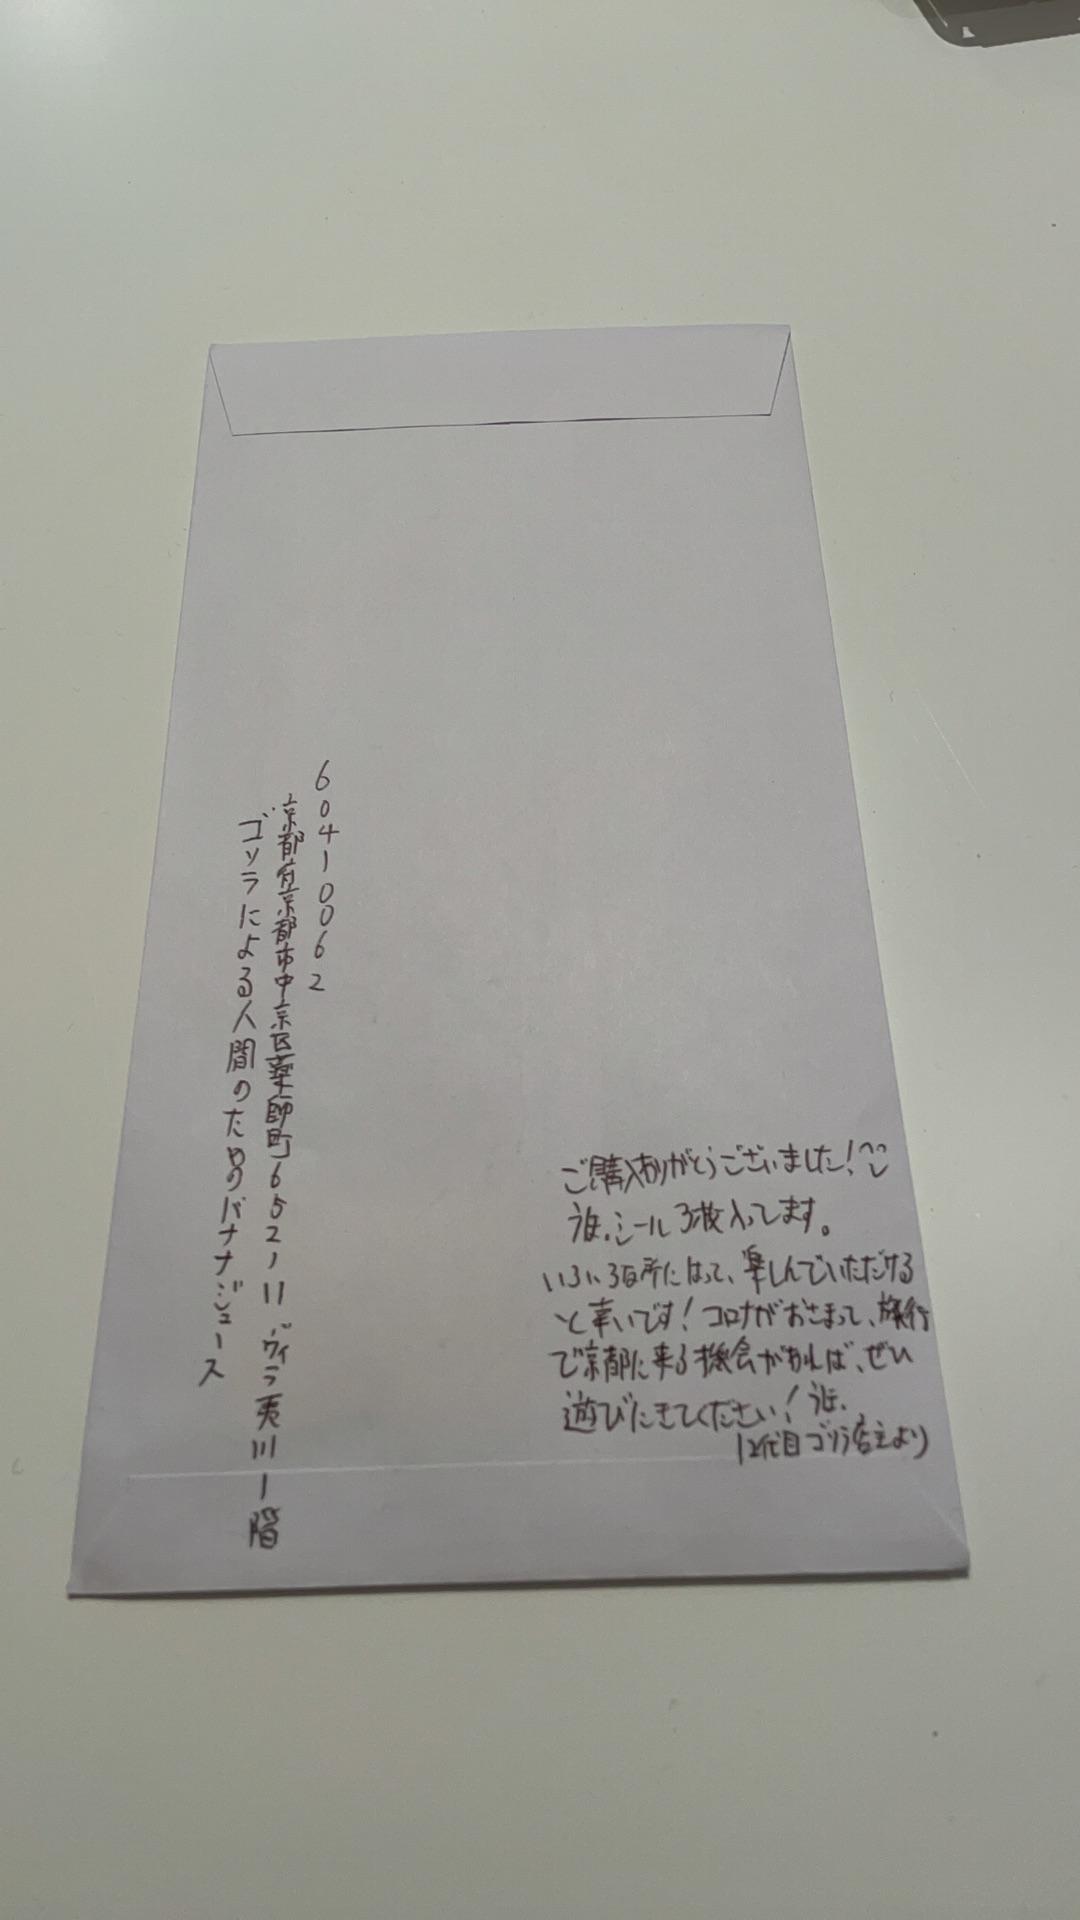 604-0062
京都府京都市中京区薬師町652-11 ヴィラ夷川1階
ゴリラによる人間のためのバナナジュース
ご購入ありがとうございました!
う匠。シール3枚入ってます。
いろいろな所にはって、楽しんでいただける
と幸いです!コロナがおさまって、旅行
で京都に来る機会があれば、ぜひ
遊びにきてください!う匠。
12代目ゴリラ店主より